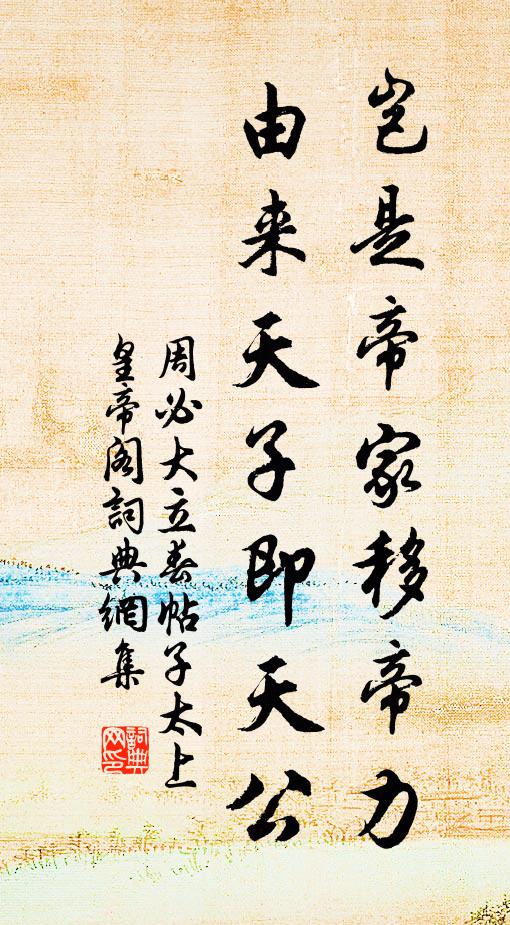 岂是帝家移帝力
由来天子即天公
周必大立春帖子太上
皇帝阁詞典網集
詞典网印